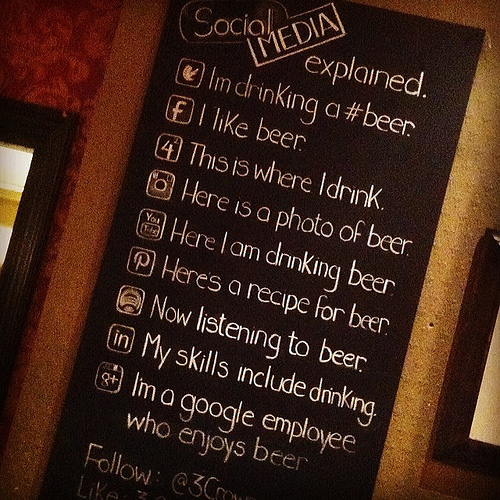 Social MEDIA
explained.
Im drinking a #beer.
f I like beer.
4 This is where I drink.
Here is a photo of beer.
You Tube Here I am drinking beer
P Here's a recipe for beer.
Now listening to beer.
in My skills include drinking.
g+ Im a google employee
who enjoys beer
Follow: @3Crow
Like: 3